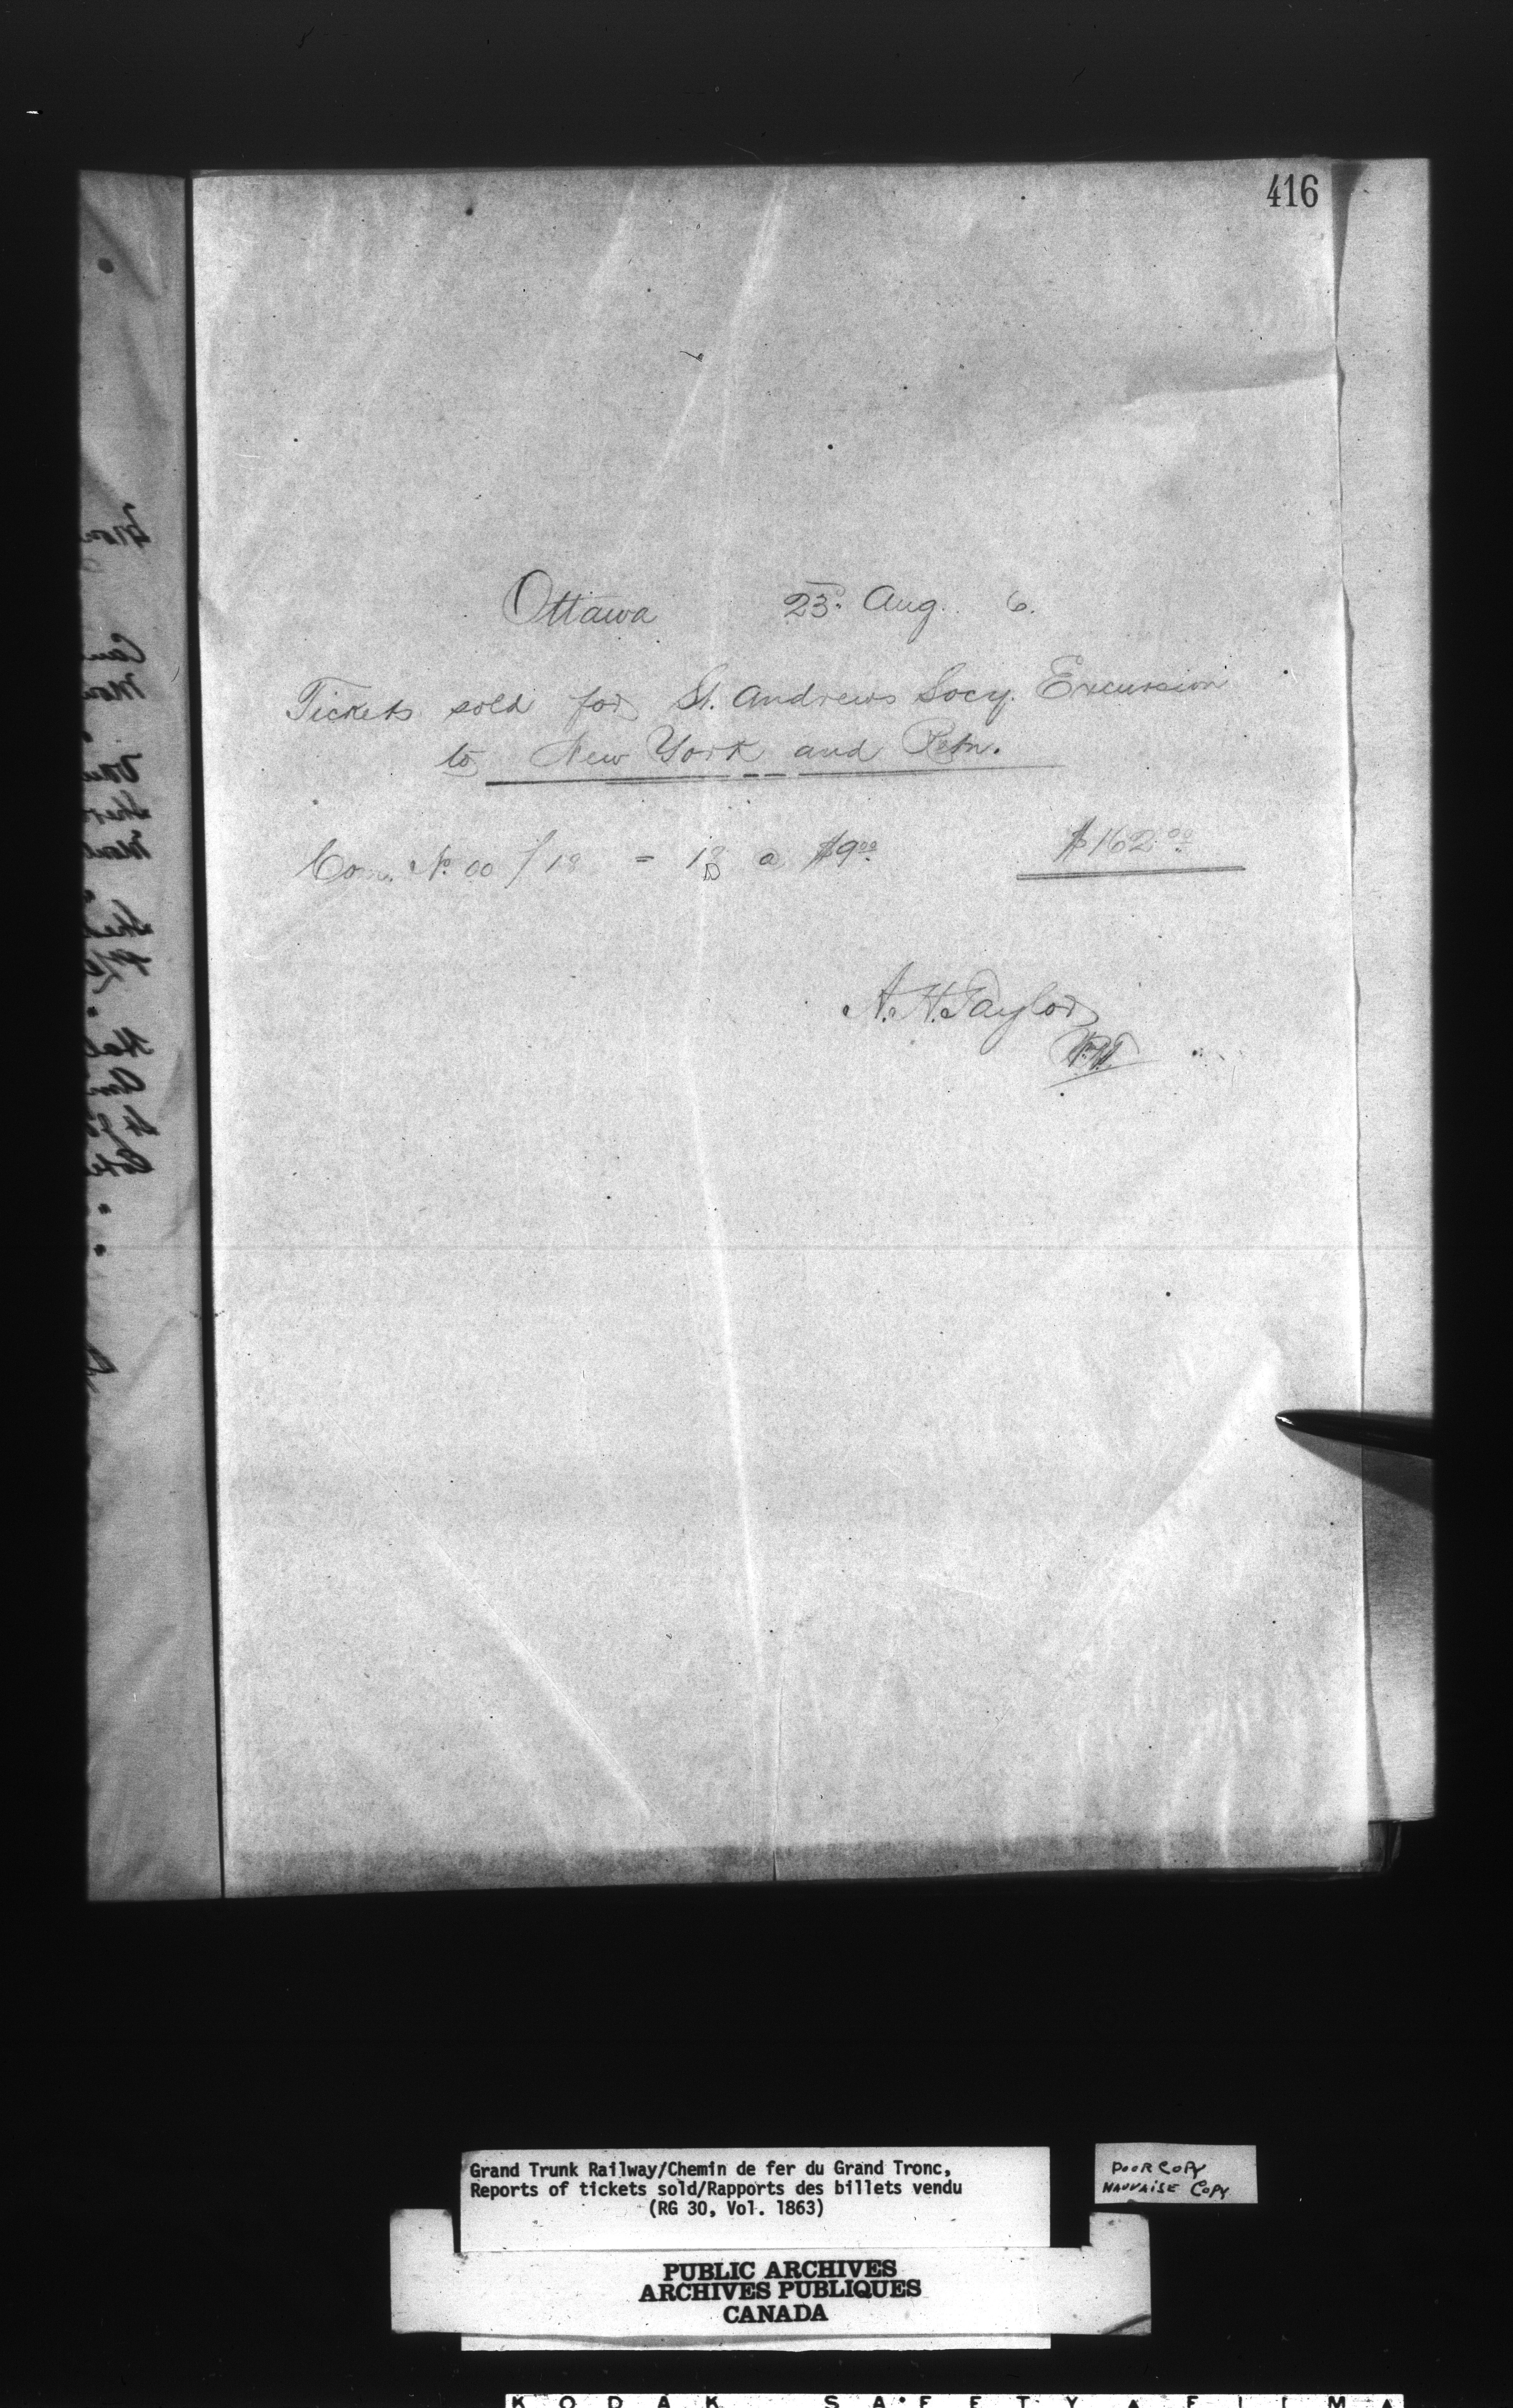 416
Ottawa 23. Aug. 6.
Tickets sold for St. Andrews Socy. Excursion
to New York and Retn.
Com. No. 00 / 18 = 18 a $9.00 $162.00
A. H. Taylor
Grand Trunk Railway/Chemin de fer du Grand Tronc,
Reports of tickets sold/Rapports des billets vendu
(RG 30, Vol. 1863)
POOR COPY
MAUVAISE COPY
PUBLIC ARCHIVES
ARCHIVES PUBLIQUES
CANADA
KODAK SAFETY A FILM A